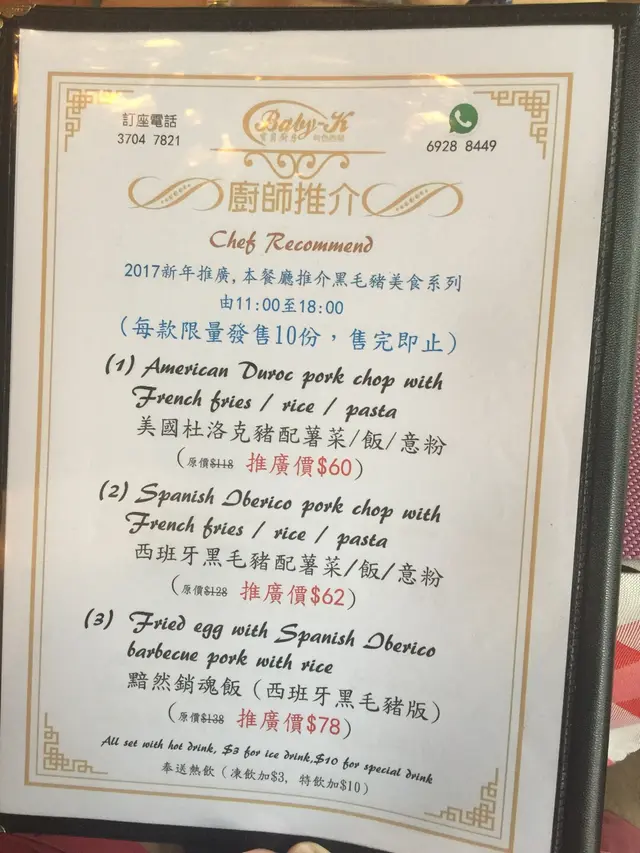 訂座電話
3704 7821
Baby-K
6928 8449
廚師推介
Chef Recommend
2017新年推廣,本餐廳推介黑毛豬美食系列
由11:00至18:00
(每款限量發售10份,售完即止)
(1) American Duroc pork chop with
French fries / rice / pasta
美國杜洛克豬配薯菜/飯/意粉
(原價$118 推廣價$60)
(2) Spanish Iberico pork chop with
French fries / rice / pasta
西班牙黑毛豬配薯菜/飯/意粉
(原價$128 推廣價$62)
(3) Fried egg with Spanish Iberico
barbecue pork with rice
黯然銷魂飯 (西班牙黑毛豬版)
(原價$138 推廣價$78)
All set with hot drink, $3 for ice drink,$10 for special drink
奉送熱飲 (凍飲加$3, 特飲加$10)